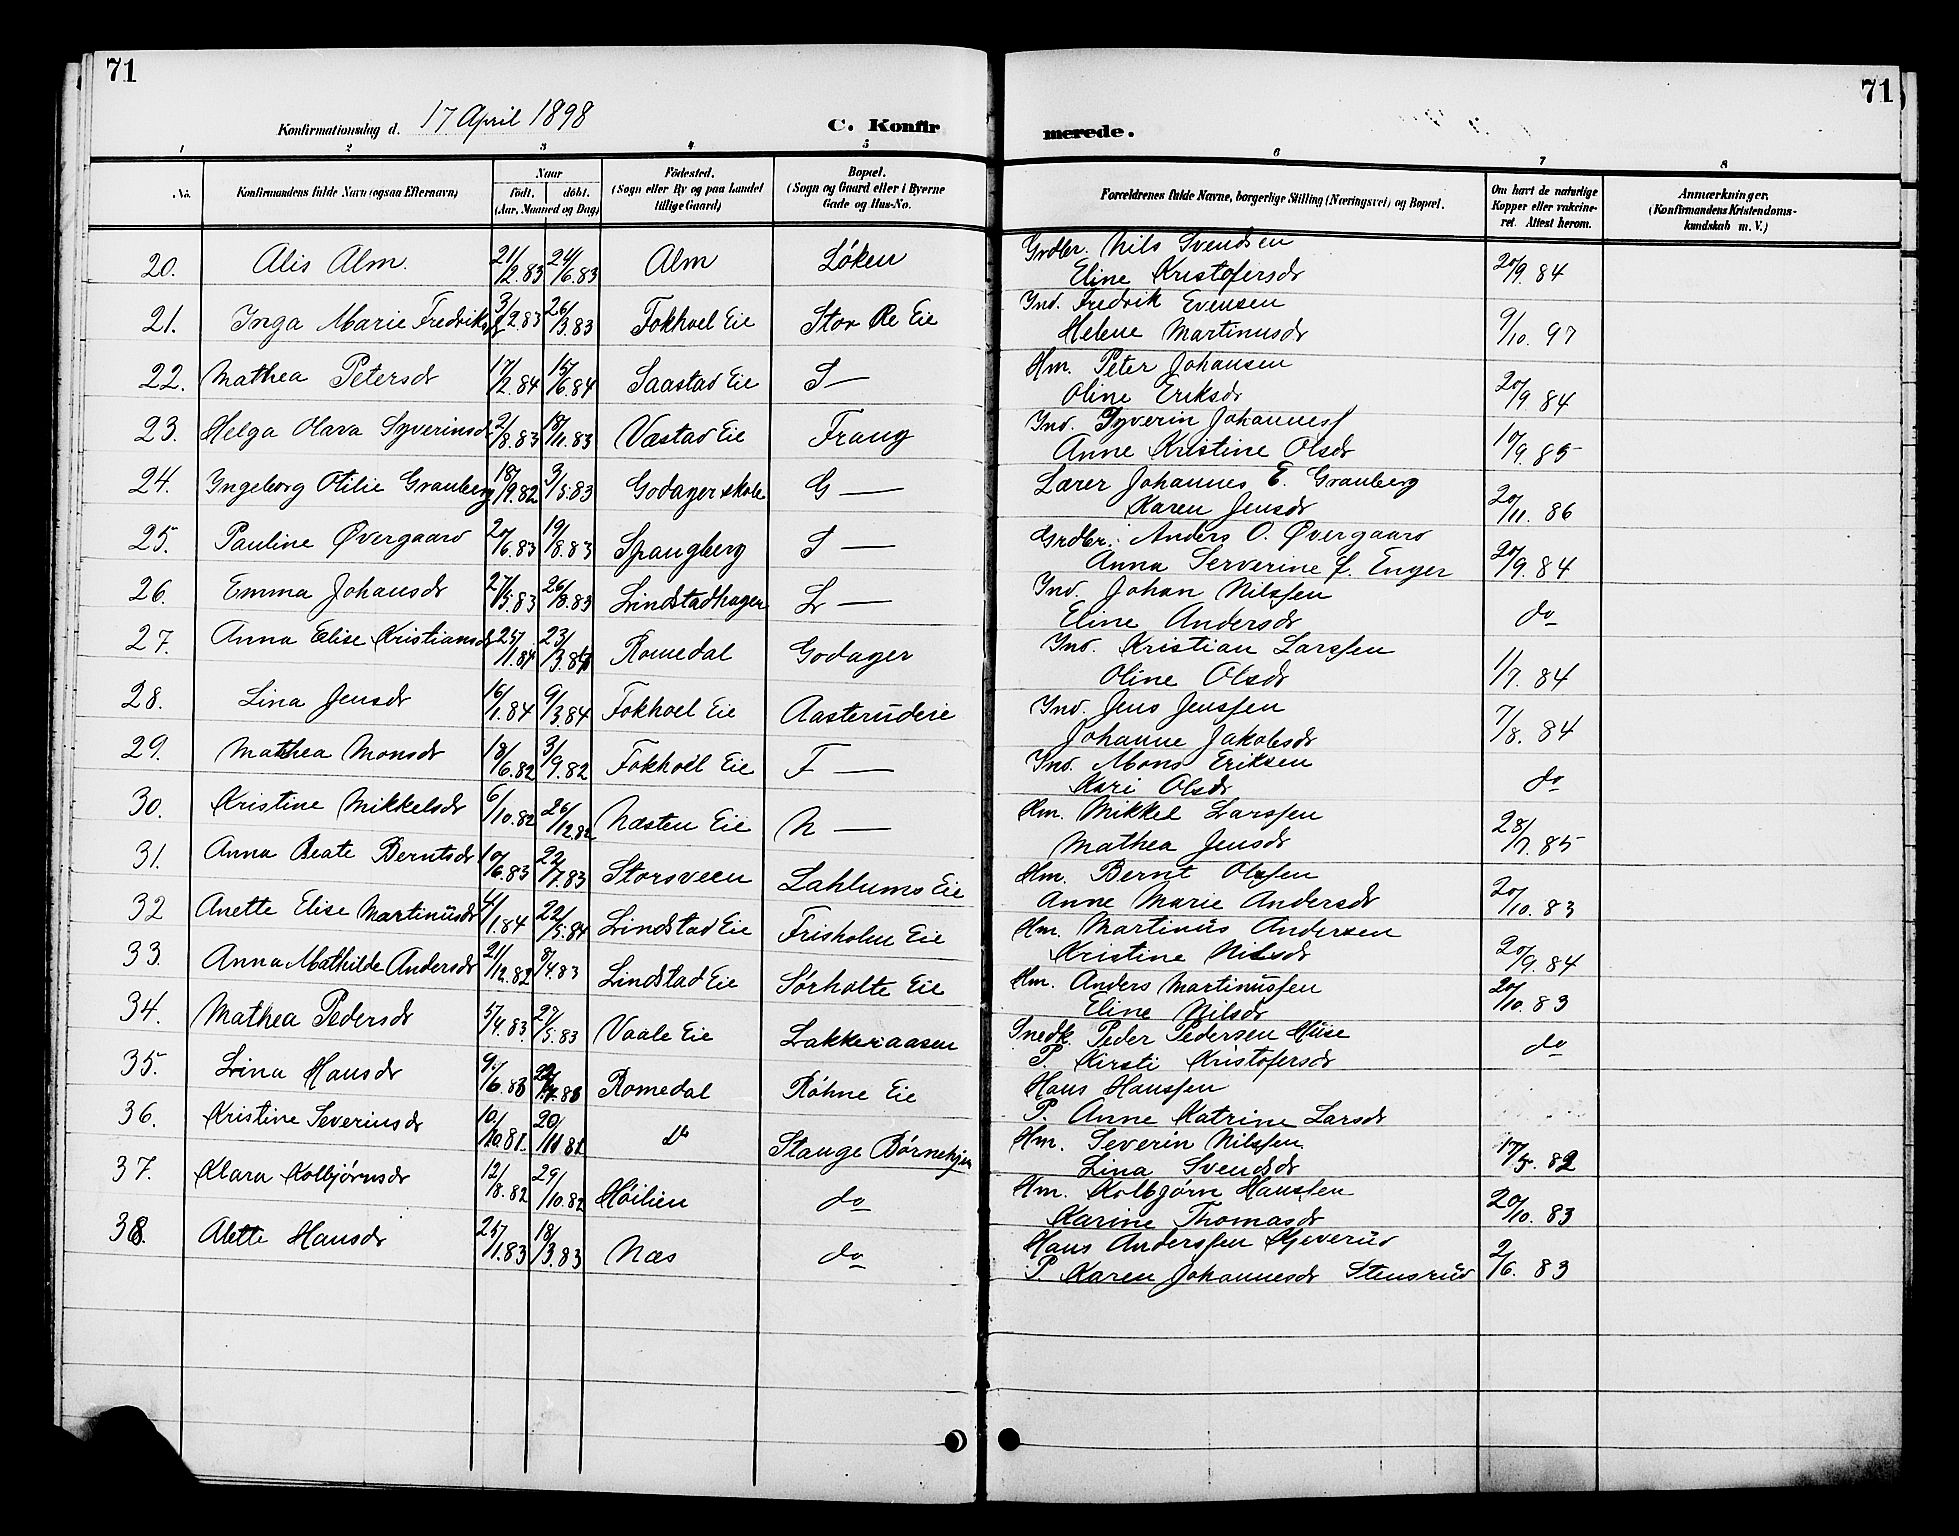 71
71
Konfirmationsdag d. 17 April 1898
C. Konfirmerede.
1 2 3 4 5 6 7 8
No.
Konfirmandens fulde Navn (ogsaa Efternavn)
Naar født. døbt. (Aar, Maaned og Dag)
Fødested. (Sogn eller By og paa Landet tillige Gaard)
Bopæl. (Sogn og Gaard eller i Byerne Gade og Hus-No.
Forældrenes fulde Navne, borgerlige Stilling (Næringsvei) og Bopæl.
Om havt de naturlige Kopper eller vakcineret. Attest herom.
Anmærkninger. (Konfirmandens Kristendomskundskab m. V.)
20. Alis Alm. 21/12.83 24/6.83 Alm Løken Grdbr. Nils Svendsen 20/9.84
Eline Kristofersdr
21. Inga Marie Fredriksd 3/2.83 26/3.83 Fokhoel Eie Stor Re Eie Ind. Fredrik Evensen 9/10.97
Helene Martinusdr
22. Mathea Petersdr 17/2.84 15/6.84 Saastad Eie S — Hm. Peter Johansen 20/9.84
Oline Eriksdr
23. Helga Olava Syverinsdr 2/8.83 18/11.83 Væstad Eie Frang Ind. Syverin Johannesf 10/9.85
Anne Kristine Olsdr
24. Ingeborg Otilie Granberg 18/9.82 3/5.83 Godager skole G — Lærer Johannes E. Granberg 20/11.86
Karen Jensdr
25. Pauline Øvergaard 20/6.83 19/8.83 Spangberg S — Grdbr. Anders O. Øvergaard 20/9.84
Anna Serverine f. Enger
26. Emma Johansdr 27/5.83 26/8.83 Lindstadhagen L — Ind. Johan Nilssen do
Eline Andersdr
27. Anna Elise Kristiansdr 25/1.84 23/3.84 Romedal Godager Ind. Kristian Larssen 1/7.84
Oline Olsdr
28. Lina Jensdr 16/1.84 9/3.84 Fokhoel Eie Aasterudeie Ind. Jens Jenssen 7/8.84
Johanne Jakobsdr
29. Mathea Monsdr 18/6.82 3/9.82 Fokhoel Eie F — Ind. Mons Eriksen do
Kari Olsdr
30. Kristine Mikkelsdr 6/10.82 26/12.82 Næsten Eie N — Hm. Mikkel Larssen 28/7.85
Mathea Jensdr
31. Anna Beate Berntsdr 10/6.83 22/7.83 Storsveen Lahlums Eie Hm. Bernt Olssen 20/10.83
Anne Marie Andersdr
32 Anette Elise Martinusdr 4/1.84 22/5.84 Lindstad Eie Frisholm Eie Hm. Martinus Andersen 20/9.84
Kristine Nilsdr
33. Anna Mathilde Andersdr 21/12.82 8/4.83 Lindstad Eie Sørholte Eie Hm. Anders Martinussen 20/10.83
Eline Nilsdr
34. Mathea Pedersdr 5/4.83. 27/5.83 Vaale Eie Lakkeraasen Snedk. Peder Pedersen Huse do
P. Kirsti Kristofersdr
35. Lina Hansdr 9/6.83 Romedal Røhne Eie Hans Hanssen
P. Anne Katrine Larsdr
36. Kristine Severinsdr 10/10.81. 20/11 81 do Stange Børnehjem Hm. Severin Nilssen 17/5.82
Lina Svendsdr
37. Klara Kolbjørnsdr 12/8.82 29/10.82 Høilien do Hm. Kolbjørn Hanssen 20/10.83
Karine Thomasdr
38. Alette Hansdr 25/1.83 18/3.83 Næs do Hans Anderssen Gjeverud 2/6.83
P. Karen Johannesdr Stensrud